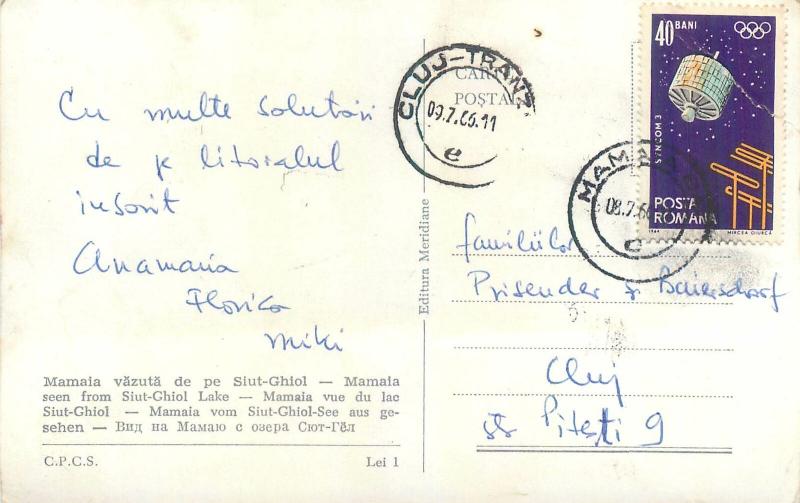 Cu multe salutări
de pe litoralul
însorit
Anamaria
Florica
Miki
Mamaia văzută de pe Siut-Ghiol — Mamaia
seen from Siut-Ghiol Lake — Mamaia vue du lac
Siut-Ghiol — Mamaia vom Siut-Ghiol-See aus ge-
sehen — Вид на Мамаю с озера Сют-Гёл
C.P.C.S. Lei 1
Editura Meridiane
CARTE
POȘTALĂ
CLUJ-TRANZ
09.7.66.11
e
MAMAIA
08.7.66
c
40 BANI
SYNCOM 3
POSTA
ROMÂNA
1964 MIRCEA GIURCĂ
familiilor
Prisender și Baiersdorf
Cluj
str Pitești 9